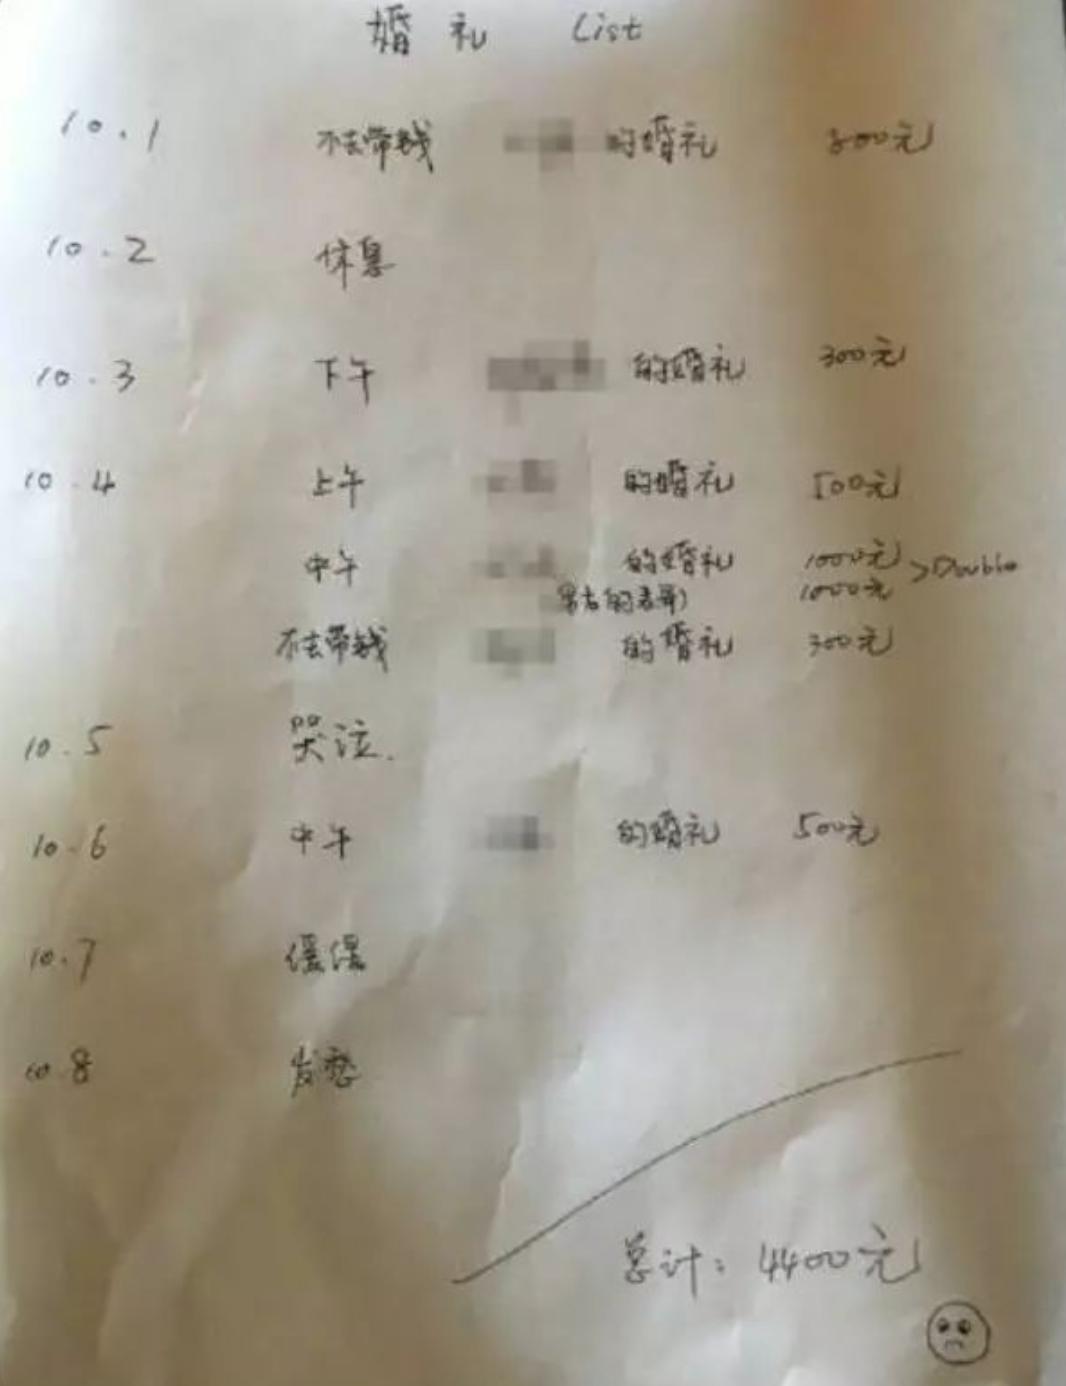 婚礼 List
10.1 不去带钱 的婚礼 800元
10.2 休息
10.3 下午 的婚礼 300元
10.4 上午 的婚礼 500元
中午 的婚礼 1000元 >Double
的表哥) 1000元
不去带钱 的婚礼 300元
10.5 哭泣.
10.6 中午 的婚礼 500元
10.7 缓缓
10.8 发愁
总计: 4400元